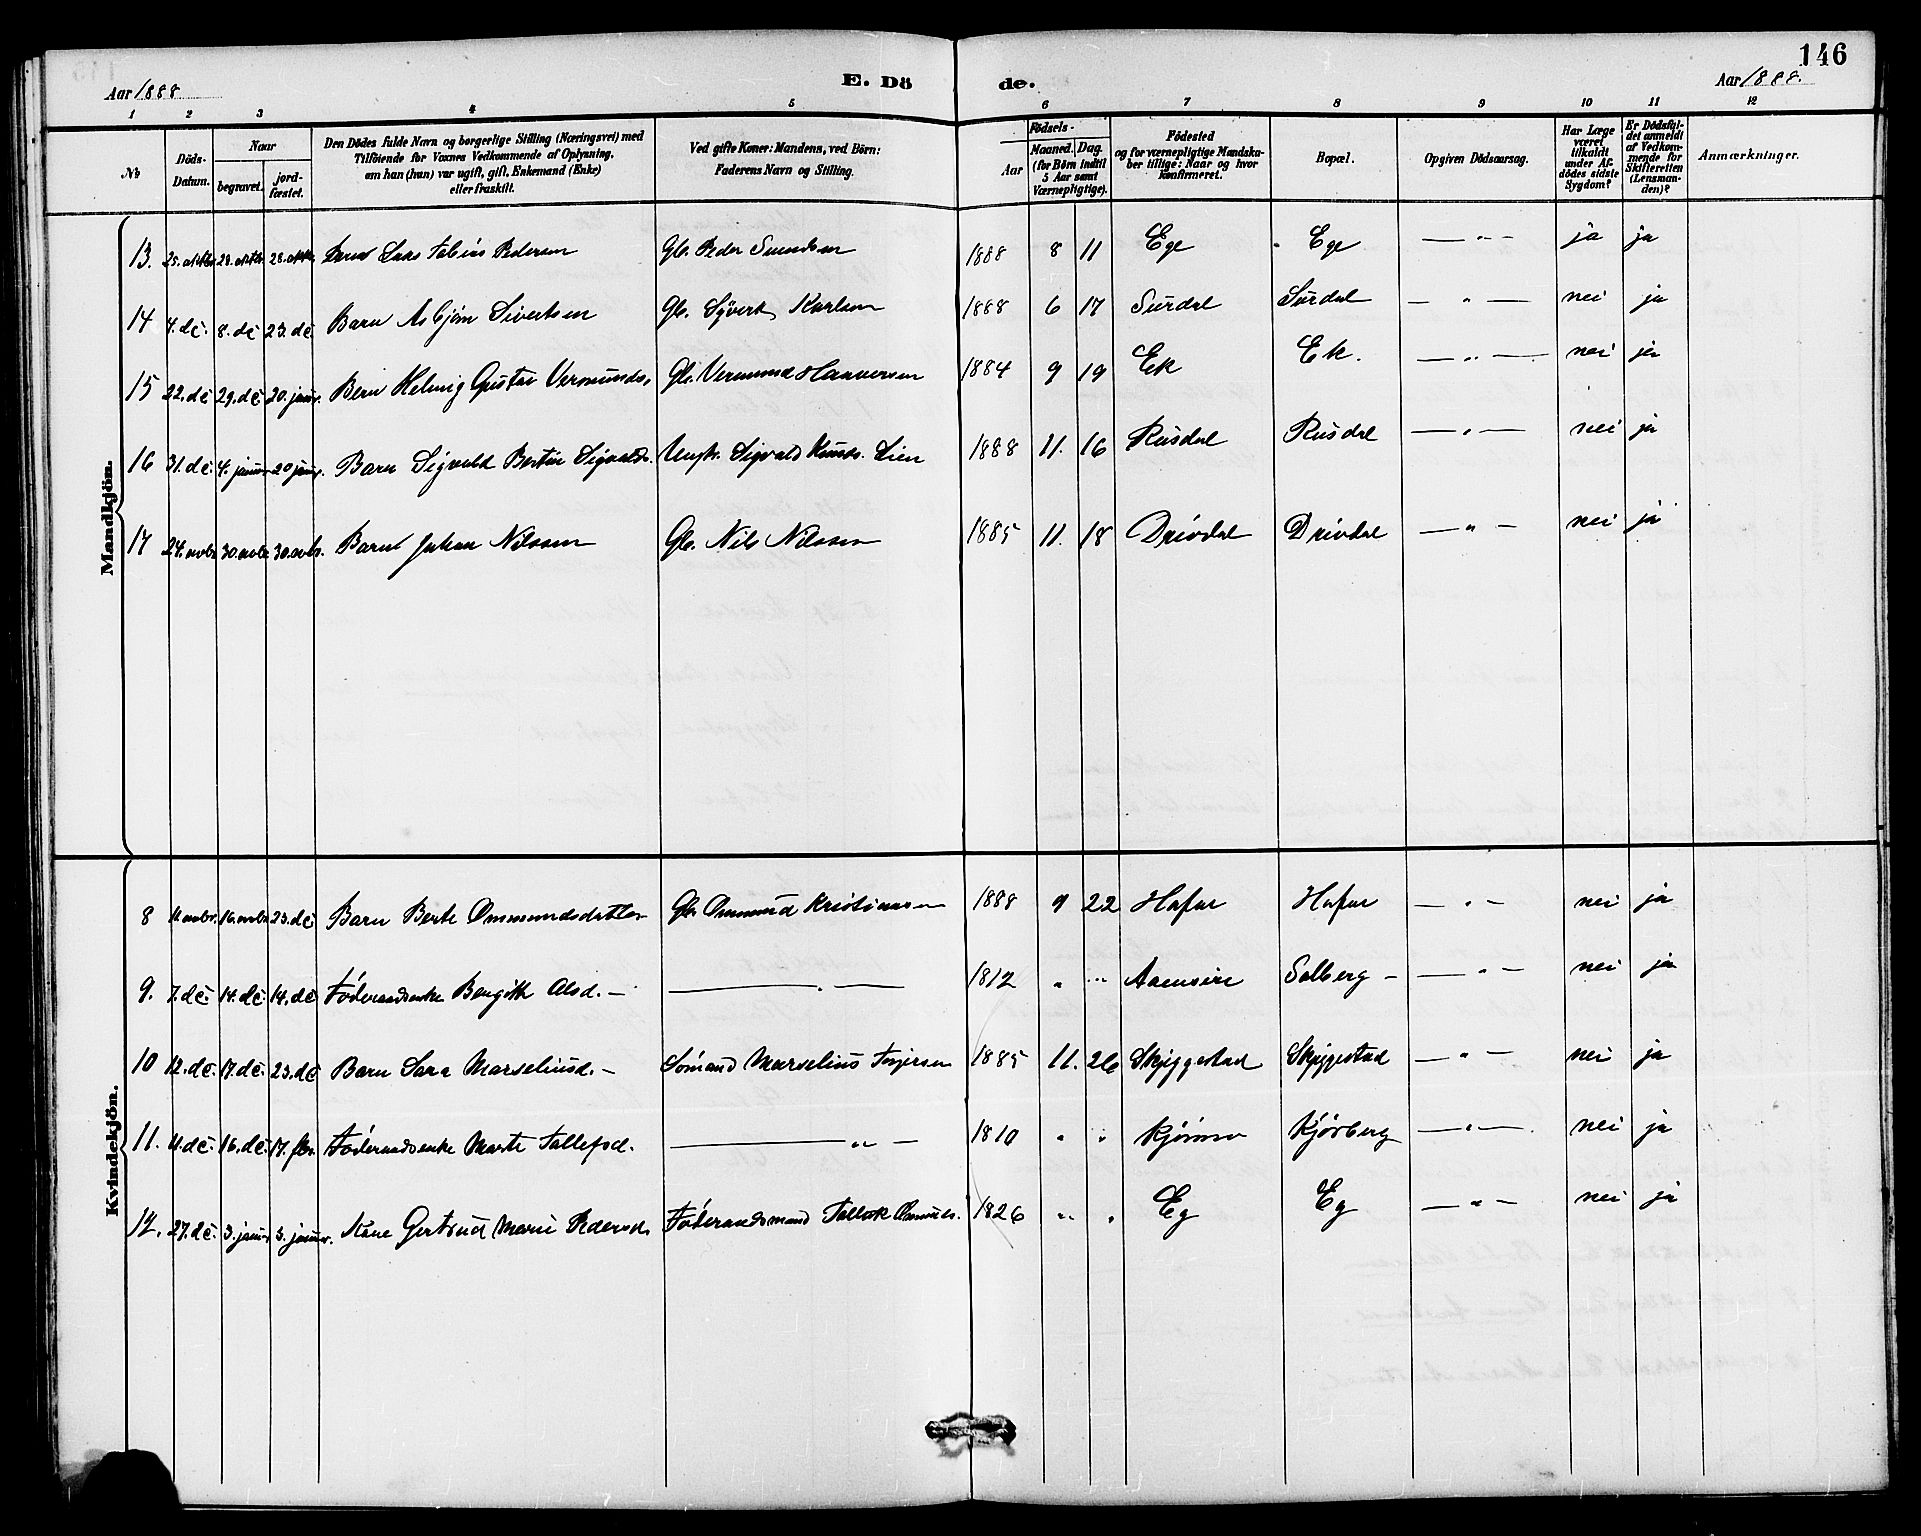 146
Aar 1888
E. Dö de.
Aar 1888.
1 2 3 4 5 6 7 8 9 10 11 12
No
Döds-Datum.
Naar
begravet.
jord-fæstet.
Den Dödes fulde Navn og borgerlige Stilling (Næringsvei) med
Tilföiende for Voxnes Vedkommende af Oplysning,
om han (hun) var ugift, gift, Enkemand (Enke)
eller fraskilt.
Ved gifte Koner: Mandens, ved Börn:
Faderens Navn og Stilling.
Födsels-
Aar
Maaned. Dag.
(for Börn indtil
5 Aar samt
Værnepligtige).
Födested
og for værnepligtige Mandska-
ber tillige: Naar og hvor
konfirmeret.
Bopæl.
Opgiven Dödsaarsag.
Har Læge
været
tilkaldt
under Af-
dödes sidste
Sygdom?
Er Dödsfal-
det anmeldt
af Vedkom-
mende for
Skifteretten
(Lensman-
den)?
Anmærkninger.
Mandkjön.
13. 25. oktbr. 28. oktbr. 28. oktbr. Lars Tobias Pedersen Gbr. Peder 1888 8 11 Ege Ege — " — ja ja
14 4. dc. 8. dc 23. dc Barn Asbjørn Sivertsen Gbr. Syvert Karlsen 1888 6 17 Surdal Surdal — " — nei ja
15 22. dc 29. dc 20. janur. Barn Helmig Gustav Vermunds. Gbr. Vermund Hanversen 1884 9 19 Ek Ek. — " — nei ja
16 31. dc 4. januar 20 januar. Barn Sigvald Bertin Sigvalds. Ungk. Sigvald Knuds. Lien 1888 11. 16 Rusdal Rusdal — " — nei ja
17 24. novbr 30. novbr 30. novbr. Barn Johan Nilssen Gbr. Nils Nilssen 1885 11. 18 Drivdal Drivdal — " — nei ja
Kvindekjön.
8 11 novbr. 16. novbr 23. dc Barn Berte Ommundsdatter Gbr. Ommund Kristiansen 1888 9 22 Hafsø Hafsø — " — nei ja
9. 7. dc. 14. dc. 14. dc Föderaadsenke Bengitte Olsd. — — . — 1812 " " Aamsire Solberg — — " — nei ja
10 12. dc. 17. dc. 23. dc Barn Sara Marselinsd. — Sömand Marselius Torjersen 1885 11. 26 Skyggestad Skyggestad — " — nei ja
11. 11. dc. 16. dc. 17. fbr. Föderaadsenke Marte Tallefsd. — " — 1810 " " Kjörberg — " — nei ja
12. 27. dc. 3. januar 3. januar. Kone Gertrud Marie Pedersd. Föderaadsmand Tallak 1826 " " Eg Eg — " — nei ja